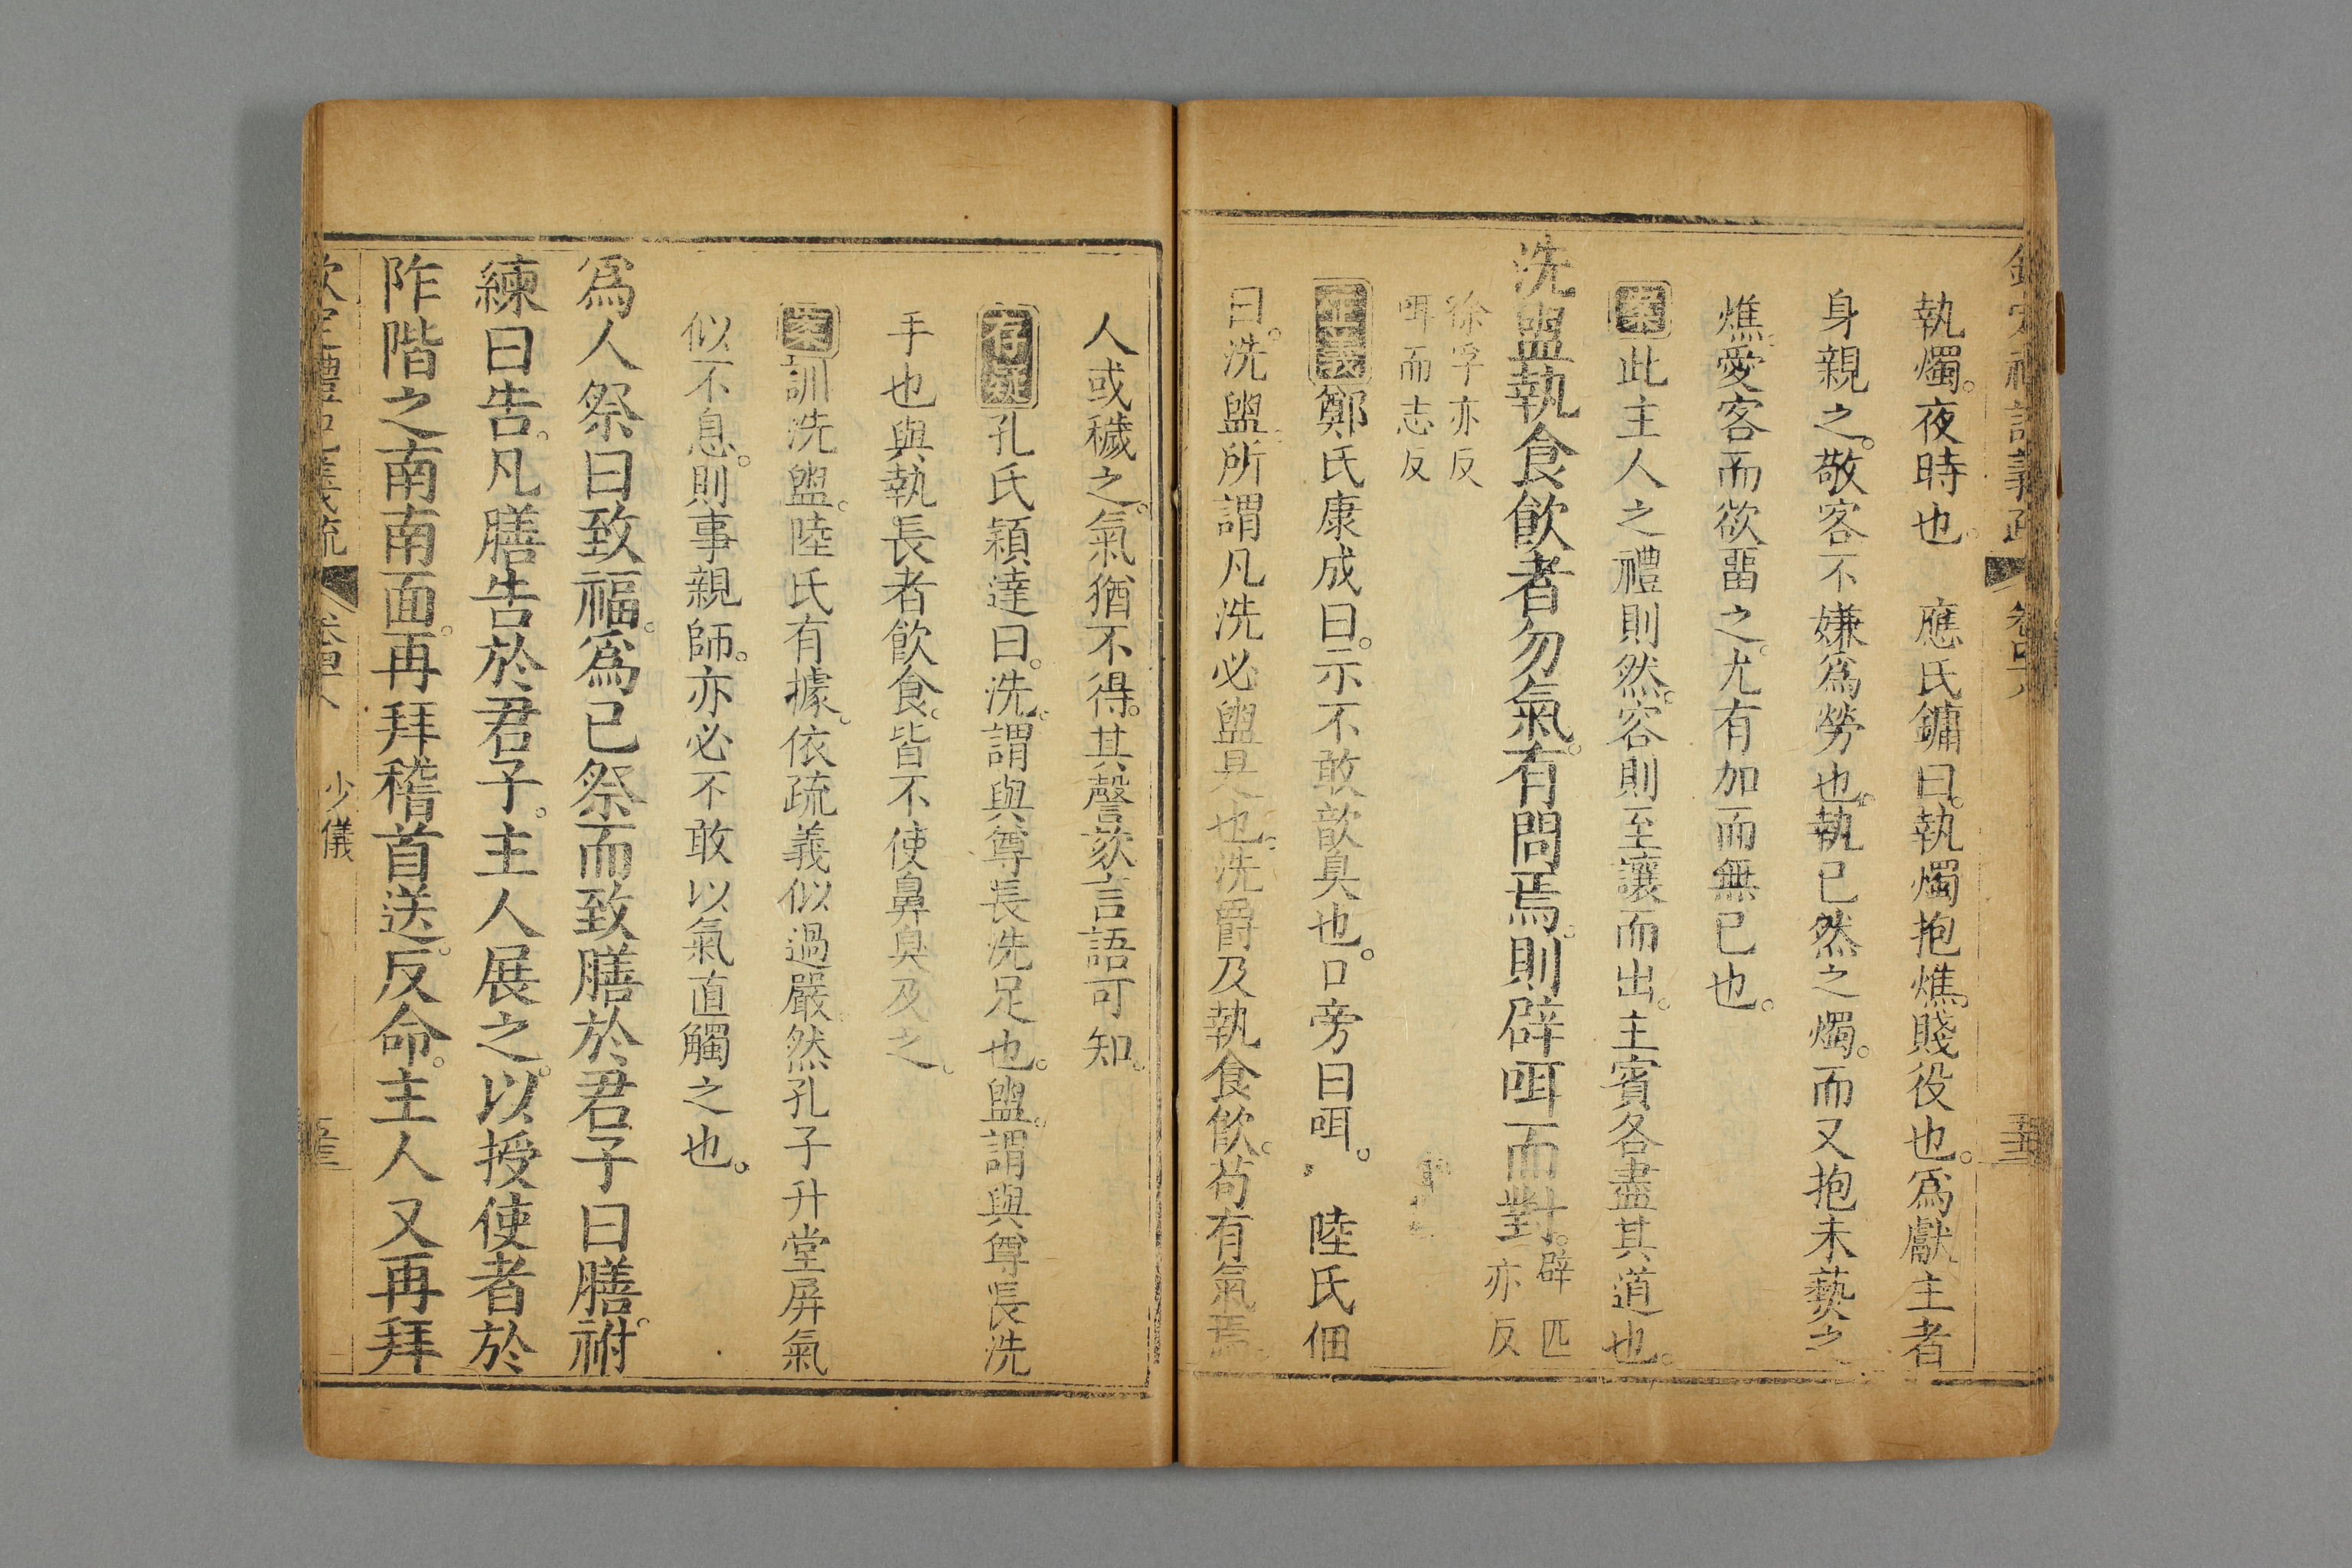 執燭。夜時也。　應氏鏞曰。執燭抱燋。賤役也。爲獻主者
身親之。敬客不嫌爲勞也。執已然之燭。而又抱未爇之
燋。愛客而欲畱之。尤有加而無已也。
案此主人之禮則然。客則至讓而出。主賓各盡其道也。
洗盥執食飲者勿氣。有問焉。則辟咡而對。辟匹亦反
徐孚亦反
咡而志反
正義鄭氏康成曰。示不敢歆臭也。口旁曰咡。　陸氏佃
曰。洗盥。所謂凡洗必盥是也。洗爵及執食飲。苟有氣焉。
人或穢之。氣猶不得。其謦欬言語可知。
存疑孔氏穎達曰。洗。謂與尊長洗足也。盥。謂與尊長洗
手也與執長者飲食。皆不使鼻臭及之。
案訓洗盥。陸氏有據。依疏義似過嚴。然孔子升堂屏氣
似不息。則事親師。亦必不敢以氣直觸之也。
爲人祭曰致福。爲已祭而致膳於君子曰膳。祔
練曰告。凡膳告於君子。主人展之。以授使者於
阼階之南南面。再拜稽首送。反命。主人又再拜
欽定禮記義疏
少儀